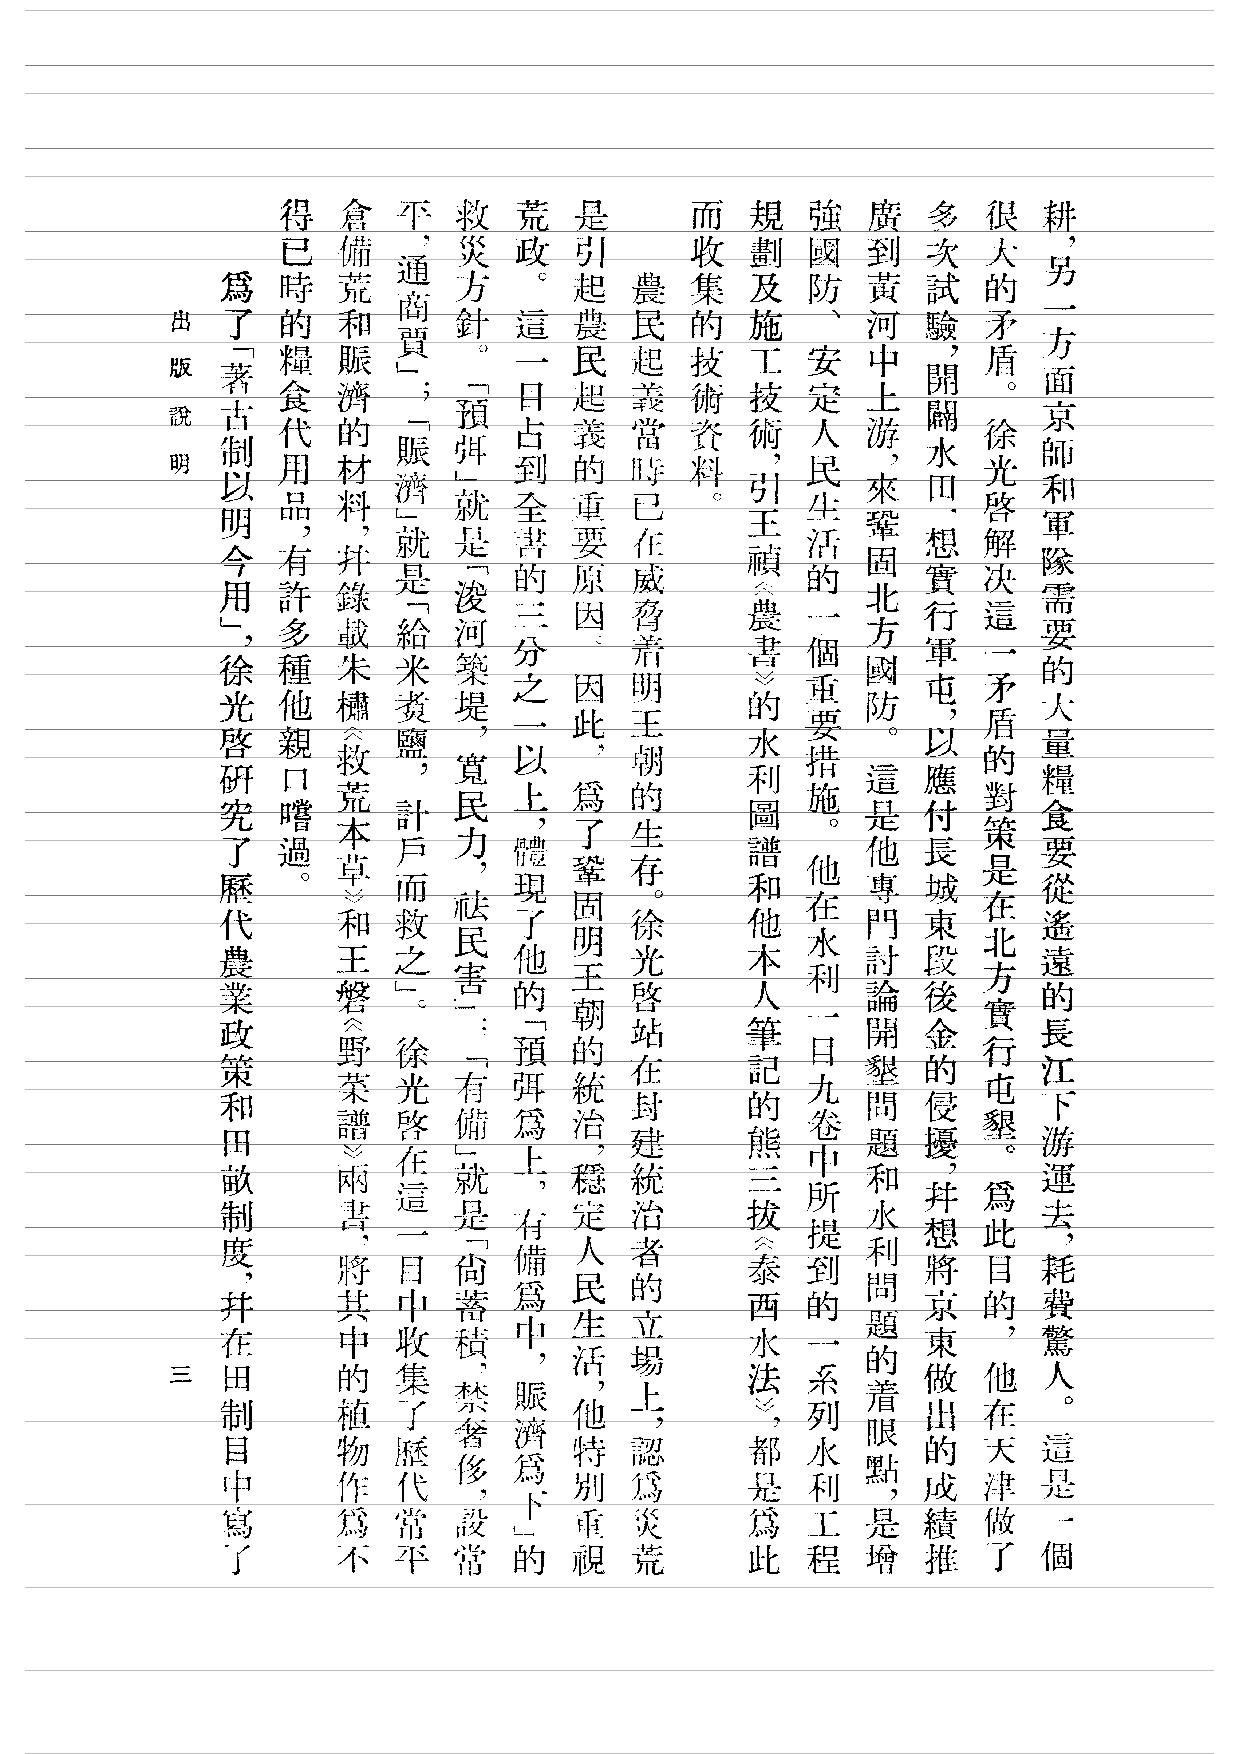 耕，另一方面京師和軍隊需要的大量糧食要從遙遠的長江下游運去，耗費驚人。這是一個
很大的矛盾。徐光啓解決這一矛盾的對策是在北方實行屯墾。爲此目的，他在天津做了
多次試驗，開闢水田、想實行軍屯，以應付長城東段後金的侵擾，幷想將京東做出的成績推
廣到黃河中上游，來鞏固北方國防。這是他專門討論開墾問題和水利問題的着眼點，是增
強國防、安定人民生活的一個重要措施。他在水利一目九卷中所提到的一系列水利工程
規劃及施工技術，引王禎《農書》的水利圖譜和他本人筆記的熊三拔《泰西水法》，都是爲此
而收集的技術資料。
農民起義當時已在威脅着明王朝的生存。徐光啓站在封建統治者的立場上，認爲災荒
是引起農民起義的重要原因。因此，爲了鞏固明王朝的統治，穩定人民生活，他特別重視
荒政。這一目占到全書的三分之一以上，體現了他的「預弭爲上，有備爲中，賑濟爲下」的
救災方針。「預弭」就是「浚河築堤，寬民力，祛民害」；「有備」就是「尙蓄積，禁奢侈，設常
平，通商賈」；「賑濟」就是「給米煑鹽，計戶而救之」。徐光啓在這一目中收集了歷代常平
倉備荒和賑濟的材料，幷錄載朱橚《救荒本草》和王磐《野菜譜》兩書，將其中的植物作爲不
得已時的糧食代用品，有許多種他親口嚐過。
爲了「著古制以明今用」，徐光啓研究了歷代農業政策和田畝制度，幷在田制目中寫了
出版說明
三